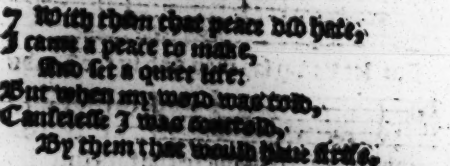 7 With them that peace did hate,
I came a peace to make,
And set a quiet life:
But when my word was told,
Causelesse I was controld,
By them that would have strife.